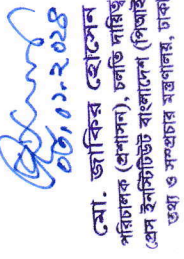 ০৬.০১.২০২৪
মো. জাকির হোসেন
পরিচালক (প্রশাসন), চলতি দায়িত্ব
প্রেস ইনস্টিটিউট বাংলাদেশ (পিআই
তথ্য ও সম্প্রচার মন্ত্রণালয়, ঢাকা